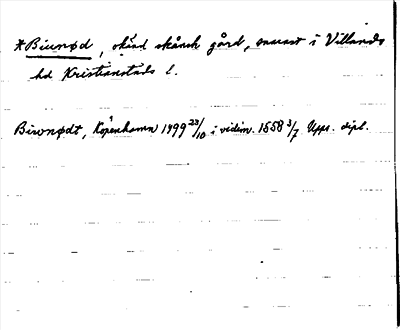 *Biunød, okänd skånsk gård, snarast i Villands
hd Kristianstads l.
Biwnødt, Köpenhamn 1499 23/10 i vidim. 1558 3/7 Upps. dipl.